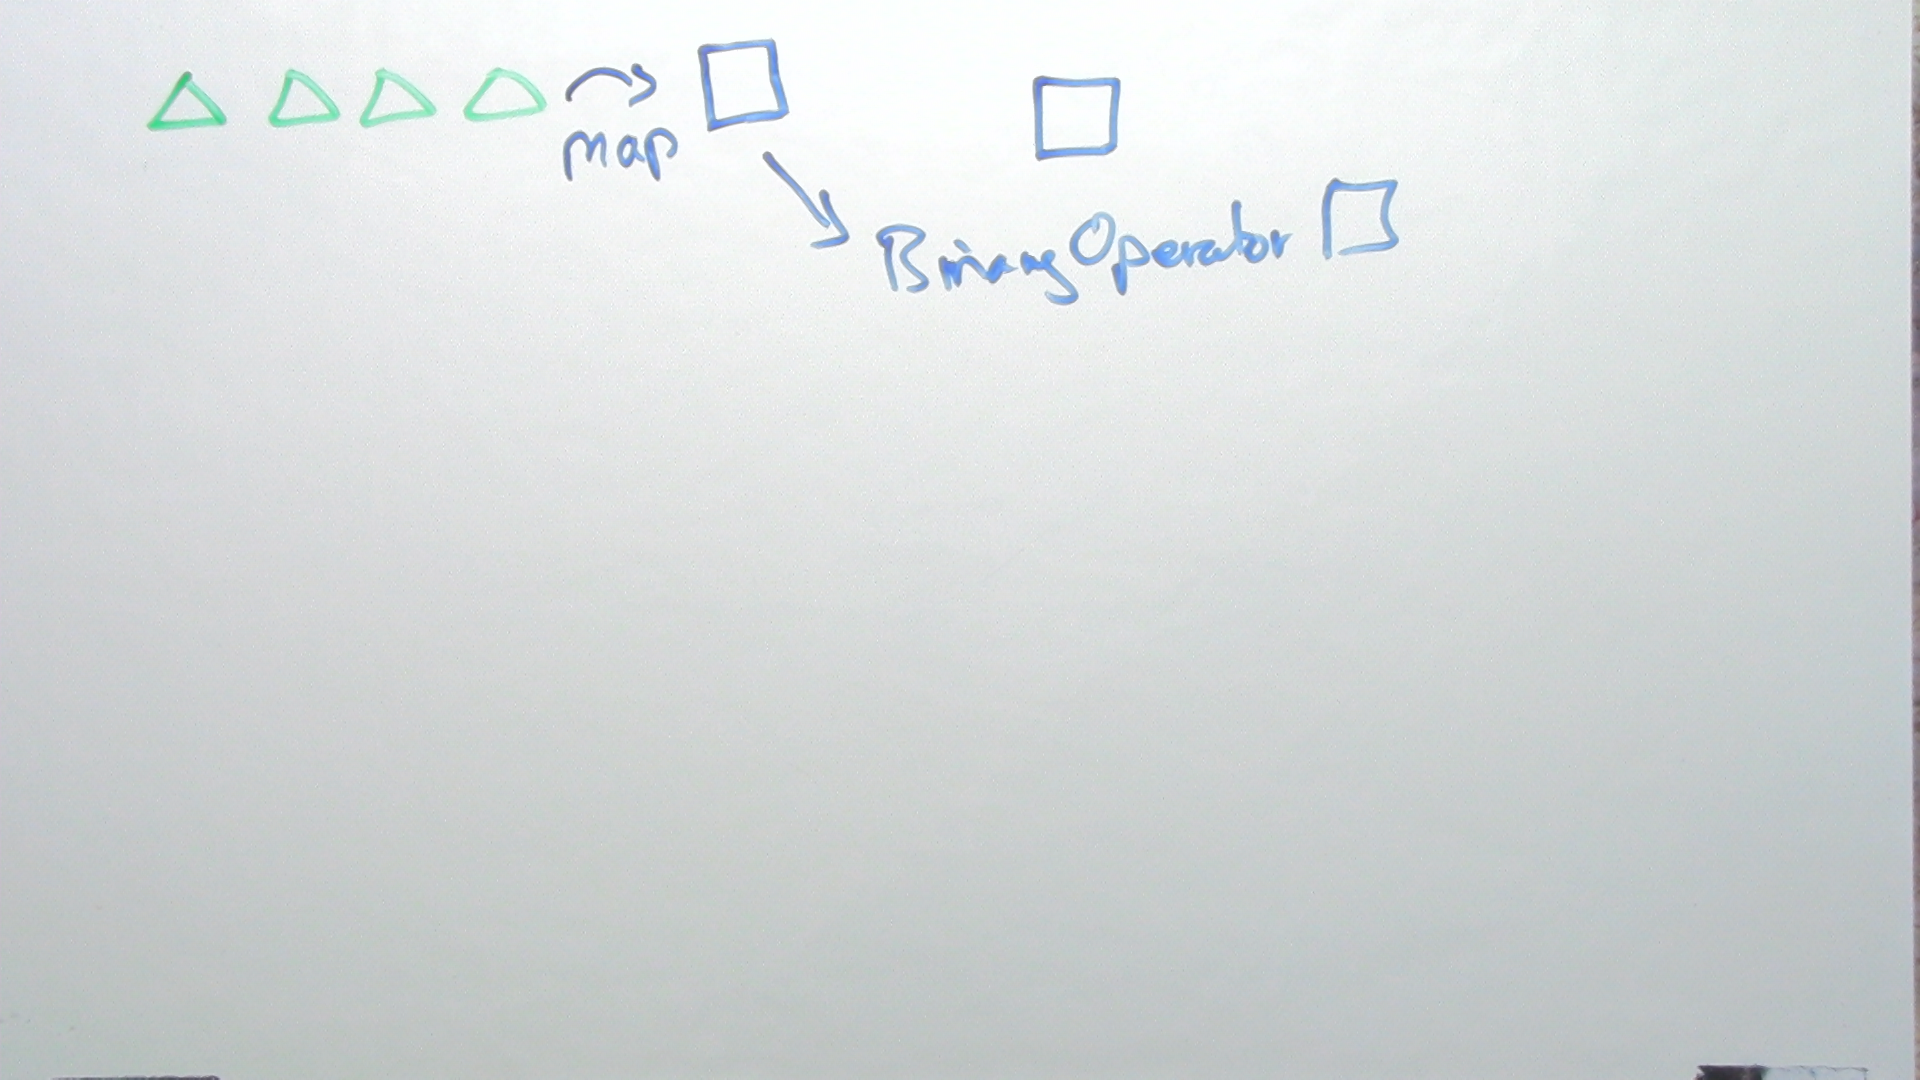 map
BinaryOperator